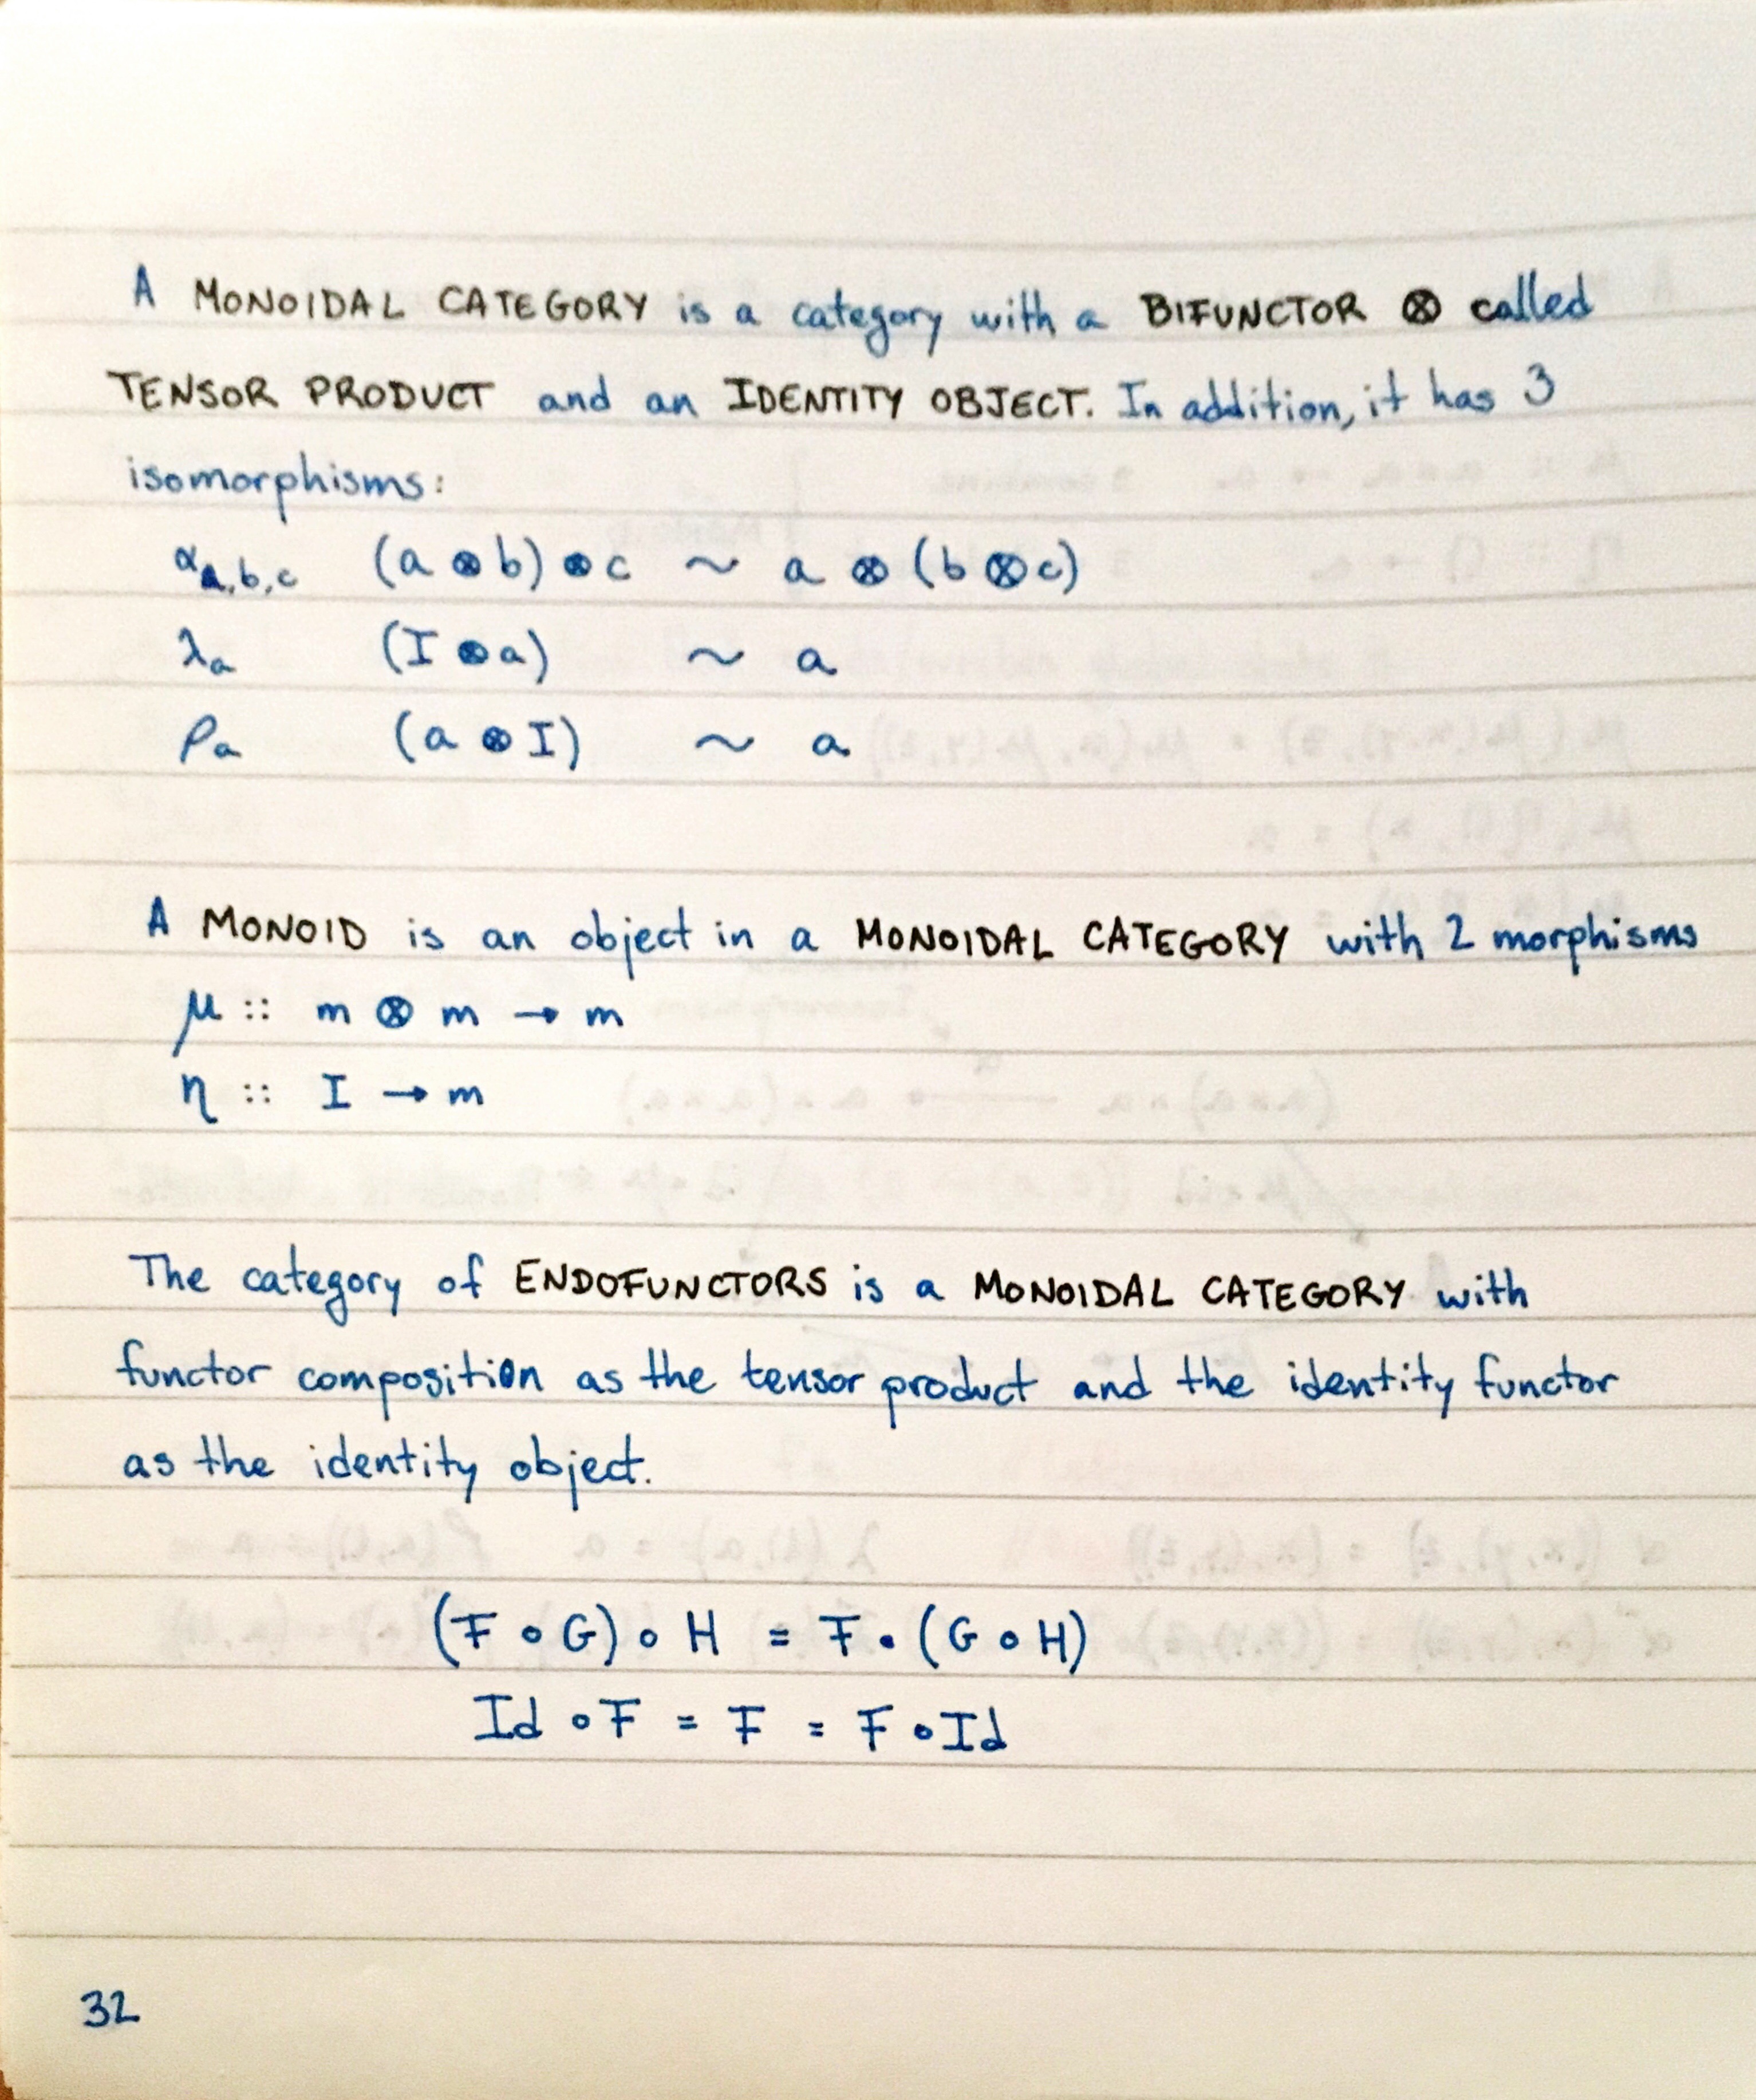 A MONOIDAL CATEGORY is a category with a BIFUNCTOR ⊗ called
TENSOR PRODUCT and an IDENTITY OBJECT. In addition, it has 3
isomorphisms:
α a,b,c (a ⊗ b) ⊗ c ~ a ⊗ (b ⊗ c)
λa (I ⊗ a) ~ a
ρa (a ⊗ I) ~ a
A MONOID is an object in a MONOIDAL CATEGORY with 2 morphisms
μ :: m ⊗ m → m
η :: I → m
The category of ENDOFUNCTORS is a MONOIDAL CATEGORY with
functor composition as the tensor product and the identity functor
as the identity object.
(F ∘ G) ∘ H = F ∘ (G ∘ H)
Id ∘ F = F = F ∘ Id
32